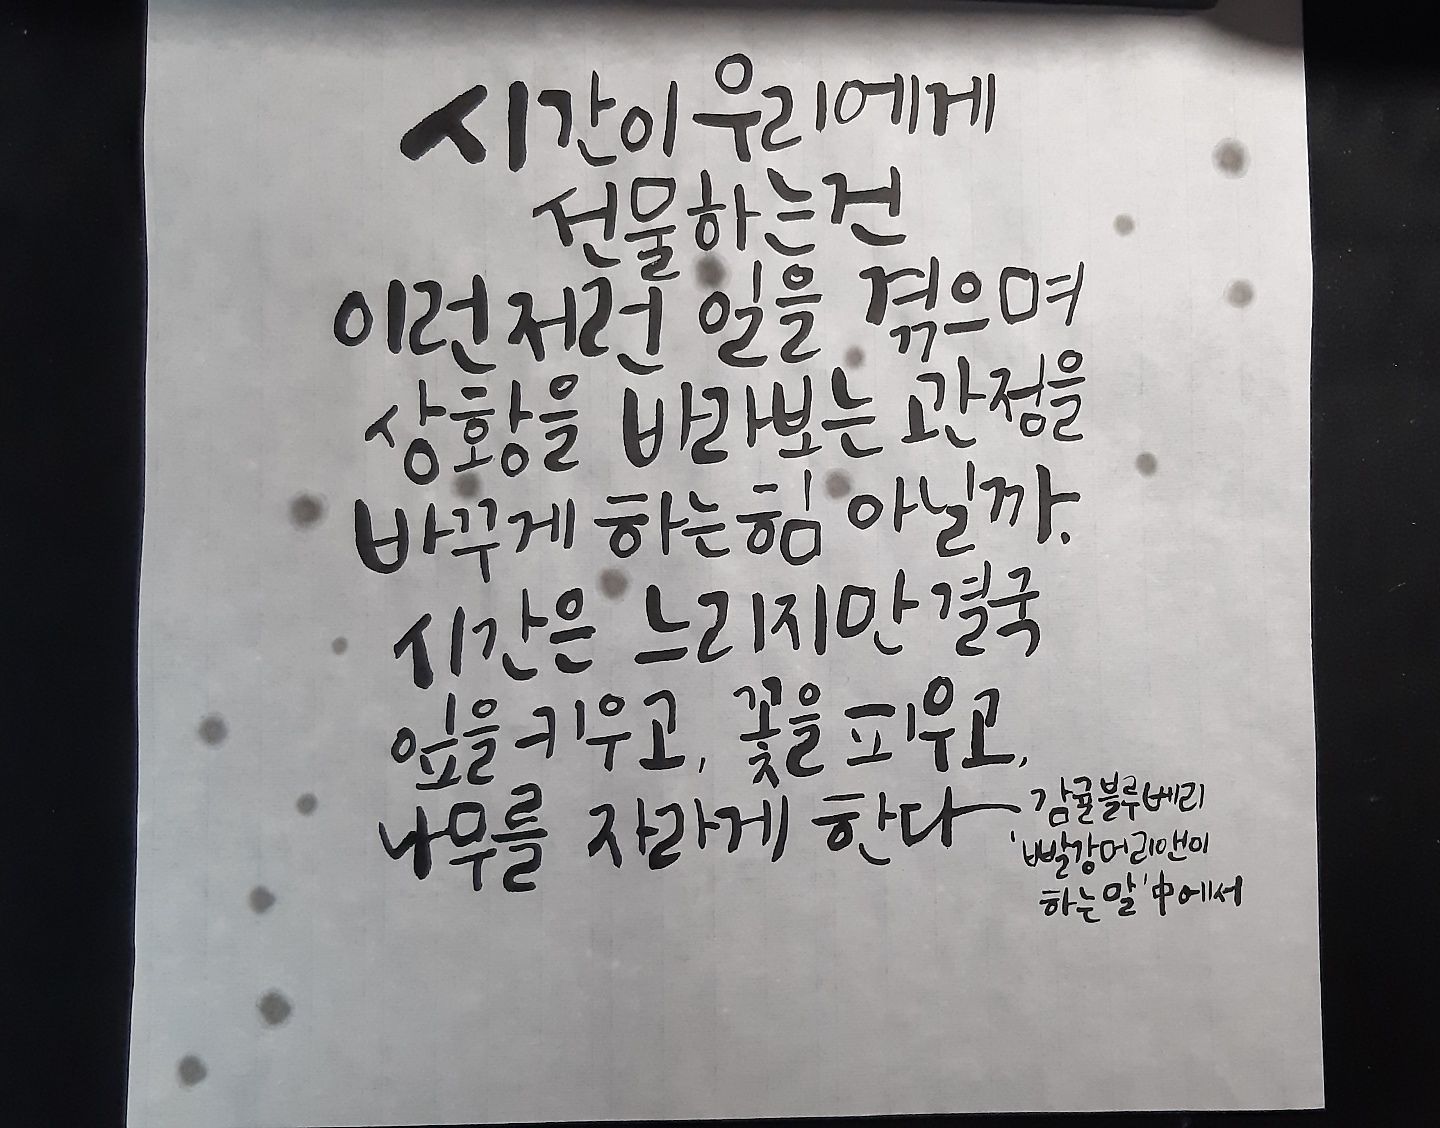 시간이 우리에게
선물하는건
이런저런 일을 겪으며
상황을 바라보는 관점을
바꾸게 하는힘 아닐까.
시간은 느리지만 결국
잎을 키우고, 꽃을 피우고,
나무를 자라게 한다
감귤블루베리
'빨강머리앤이
하는말'中에서